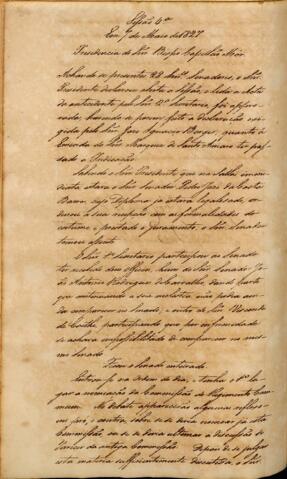 Sessão 4ª
Em 7 de Maio de 1827
Presidencia do Snr. Bispo Capellão Mór.
Achando-se presentes 28 Snrs. Senadores, o Snr.
Presidente declarou aberta a Sessão, e lida a Acta
da antecedente pelo Snr. 2º Secretario, foi appro-
vada, havendo-se porem feito a declaração
pelo Snr. José Ignacio Borges, quanto á
Emenda do Snr. Marquez de Santo Amaro ter pas-
sado a Indicação.
Sabendo o Snr. Presidente que na Salla imme-
diata estava o Snr. Senador Pedro José da Costa
Barros, cujo Diploma já estava legalisado,
a sua recepção com as formalidades do
costume, e prestado o juramento, o Snr. Sena-
dor tomou assento.
O Snr. 1º Secretario participou ao Senado
ter recebido dous Officios, hum do Snr. Senador
Antonio Rodrigues de Carvalho, dando parte
que continuando a sua molestia, não podia ain-
da comparecer no Senado, e outro do Snr. Visconde
de participando que por enfermidade
se achava impossibilitado de comparecer no mes-
mo Senado.
Ficou o Senado inteirado.
Entrou-se na ordem do dia, e tendo o 1º lu-
gar a nomeação da Commissão do Regimento Com-
mum. No debate appareceram algumas reflexões
sobre se se devia nomear já esta
Commissão, ou se se devia ultimar a discussão do
da antiga Commissão. Depois de se julgar
esta materia sufficientemente discutida, o Snr.